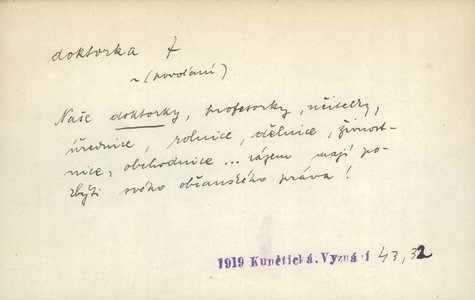 doktorka f
~ (povolání)
Naše doktorky, profesorky, učitelky,
úřednice, rolnice, dělnice, živnost-
nice, obchodnice ... rázem mají po-
zbýti svého občanského práva!
1919 Kunětická. Vyznání 43, 32